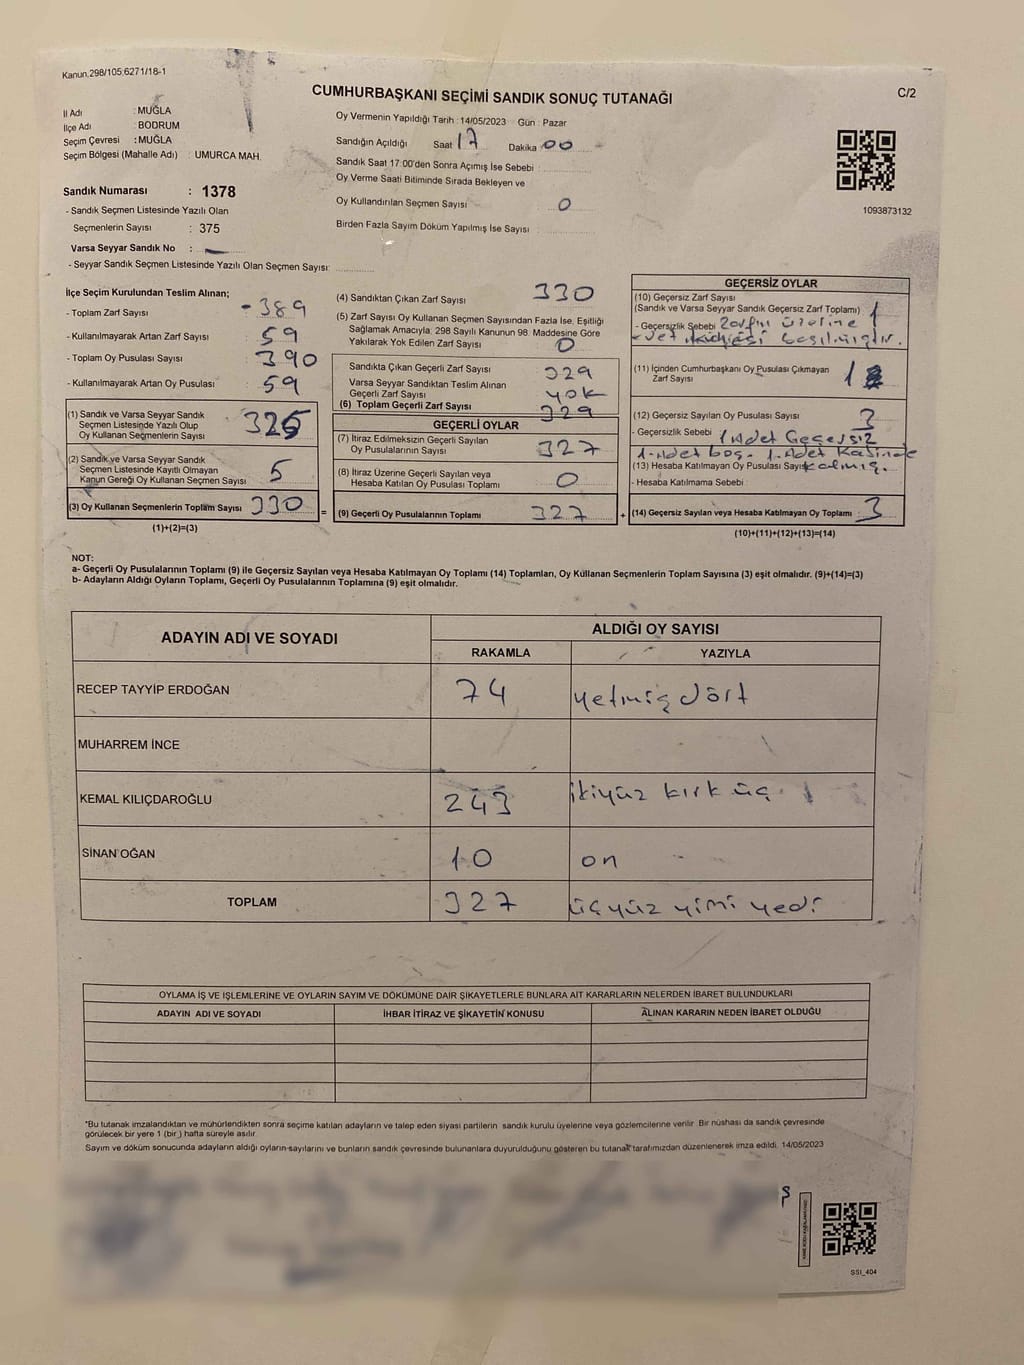 Kanun.298/105;6271/18-1
CUMHURBAŞKANI SEÇİMİ SANDIK SONUÇ TUTANAĞI
C/2
İl Adı : MUĞLA
İlçe Adı : BODRUM
Seçim Çevresi : MUĞLA
Seçim Bölgesi (Mahalle Adı) : UMURCA MAH.
Sandık Numarası : 1378
- Sandık Seçmen Listesinde Yazılı Olan
Seçmenlerin Sayısı : 375
Varsa Seyyar Sandık No :
- Seyyar Sandık Seçmen Listesinde Yazılı Olan Seçmen Sayısı:
Oy Vermenin Yapıldığı Tarih : 14/05/2023 Gün : Pazar
Sandığın Açıldığı Saat 17 Dakika 00
Sandık Saat 17:00'den Sonra Açımış İse Sebebi :
Oy Verme Saati Bitiminde Sırada Bekleyen ve
Oy Kullandırılan Seçmen Sayısı : 0
Birden Fazla Sayım Döküm Yapılmış İse Sayısı :
1093873132
İlçe Seçim Kurulundan Teslim Alınan;
- Toplam Zarf Sayısı : 389
- Kullanılmayarak Artan Zarf Sayısı : 59
- Toplam Oy Pusulası Sayısı : 390
- Kullanılmayarak Artan Oy Pusulası : 59
(1) Sandık ve Varsa Seyyar Sandık
Seçmen Listesinde Yazılı Olup
Oy Kullanan Seçmenlerin Sayısı : 325
(2) Sandık ve Varsa Seyyar Sandık
Seçmen Listesinde Kayıtlı Olmayan
Kanun Gereği Oy Kullanan Seçmen Sayısı : 5
(3) Oy Kullanan Seçmenlerin Toplam Sayısı : 330 =
(1)+(2)=(3)
(4) Sandıktan Çıkan Zarf Sayısı : 330
(5) Zarf Sayısı Oy Kullanan Seçmen Sayısından Fazla İse, Eşitliği
Sağlamak Amacıyla; 298 Sayılı Kanunun 98. Maddesine Göre
Yakılarak Yok Edilen Zarf Sayısı : 0
Sandıkta Çıkan Geçerli Zarf Sayısı : 329
Varsa Seyyar Sandıktan Teslim Alınan
Geçerli Zarf Sayısı : YOK
(6) Toplam Geçerli Zarf Sayısı : 329
GEÇERLİ OYLAR
(7) İtiraz Edilmeksizin Geçerli Sayılan
Oy Pusulalarının Sayısı : 327
(8) İtiraz Üzerine Geçerli Sayılan veya
Hesaba Katılan Oy Pusulası Toplamı : 0
(9) Geçerli Oy Pusulalarının Toplamı : 327 +
GEÇERSİZ OYLAR
(10) Geçersiz Zarf Sayısı
(Sandık ve Varsa Seyyar Sandık Geçersiz Zarf Toplamı) : 1
- Geçersizlik Sebebi : Zarfın üzerine
evet basılmıştır.
(11) İçinden Cumhurbaşkanı Oy Pusulası Çıkmayan
Zarf Sayısı : 1
(12) Geçersiz Sayılan Oy Pusulası Sayısı : 3
- Geçersizlik Sebebi : 1 Adet Geçersiz
1-Adet boş. 1.Adet Kabinde
(13) Hesaba Katılmayan Oy Pusulası Sayısı kalmış.
- Hesaba Katılmama Sebebi :
(14) Geçersiz Sayılan veya Hesaba Katılmayan Oy Toplamı : 3
(10)+(11)+(12)+(13)=(14)
NOT:
a- Geçerli Oy Pusulalarının Toplamı (9) ile Geçersiz Sayılan veya Hesaba Katılmayan Oy Toplamı (14) Toplamları, Oy Kullanan Seçmenlerin Toplam Sayısına (3) eşit olmalıdır. (9)+(14)=(3)
b- Adayların Aldığı Oyların Toplamı, Geçerli Oy Pusulalarının Toplamına (9) eşit olmalıdır.
ADAYIN ADI VE SOYADI ALDIĞI OY SAYISI
RAKAMLA YAZIYLA
RECEP TAYYİP ERDOĞAN 74 yetmiş dört
MUHARREM İNCE
KEMAL KILIÇDAROĞLU 243 ikiyüz kırk üç
SİNAN OĞAN 10 on
TOPLAM 327 üçyüz yimi yedi
OYLAMA İŞ VE İŞLEMLERİNE VE OYLARIN SAYIM VE DÖKÜMÜNE DAİR ŞİKAYETLERLE BUNLARA AİT KARARLARIN NELERDEN İBARET BULUNDUKLARI
ADAYIN ADI VE SOYADI İHBAR İTİRAZ VE ŞİKAYETİN KONUSU ALINAN KARARIN NEDEN İBARET OLDUĞU
*Bu tutanak imzalandıktan ve mühürlendikten sonra seçime katılan adayların ve talep eden siyasi partilerin sandık kurulu üyelerine veya gözlemcilerine verilir. Bir nüshası da sandık çevresinde
görülecek bir yere 1 (bir ) hafta süreyle asılır.
Sayım ve döküm sonucunda adayların aldığı oyların sayılarını ve bunların sandık çevresinde bulunanlara duyurulduğunu gösteren bu tutanak tarafımızdan düzenlenerek imza edildi. 14/05/2023
SSI_404